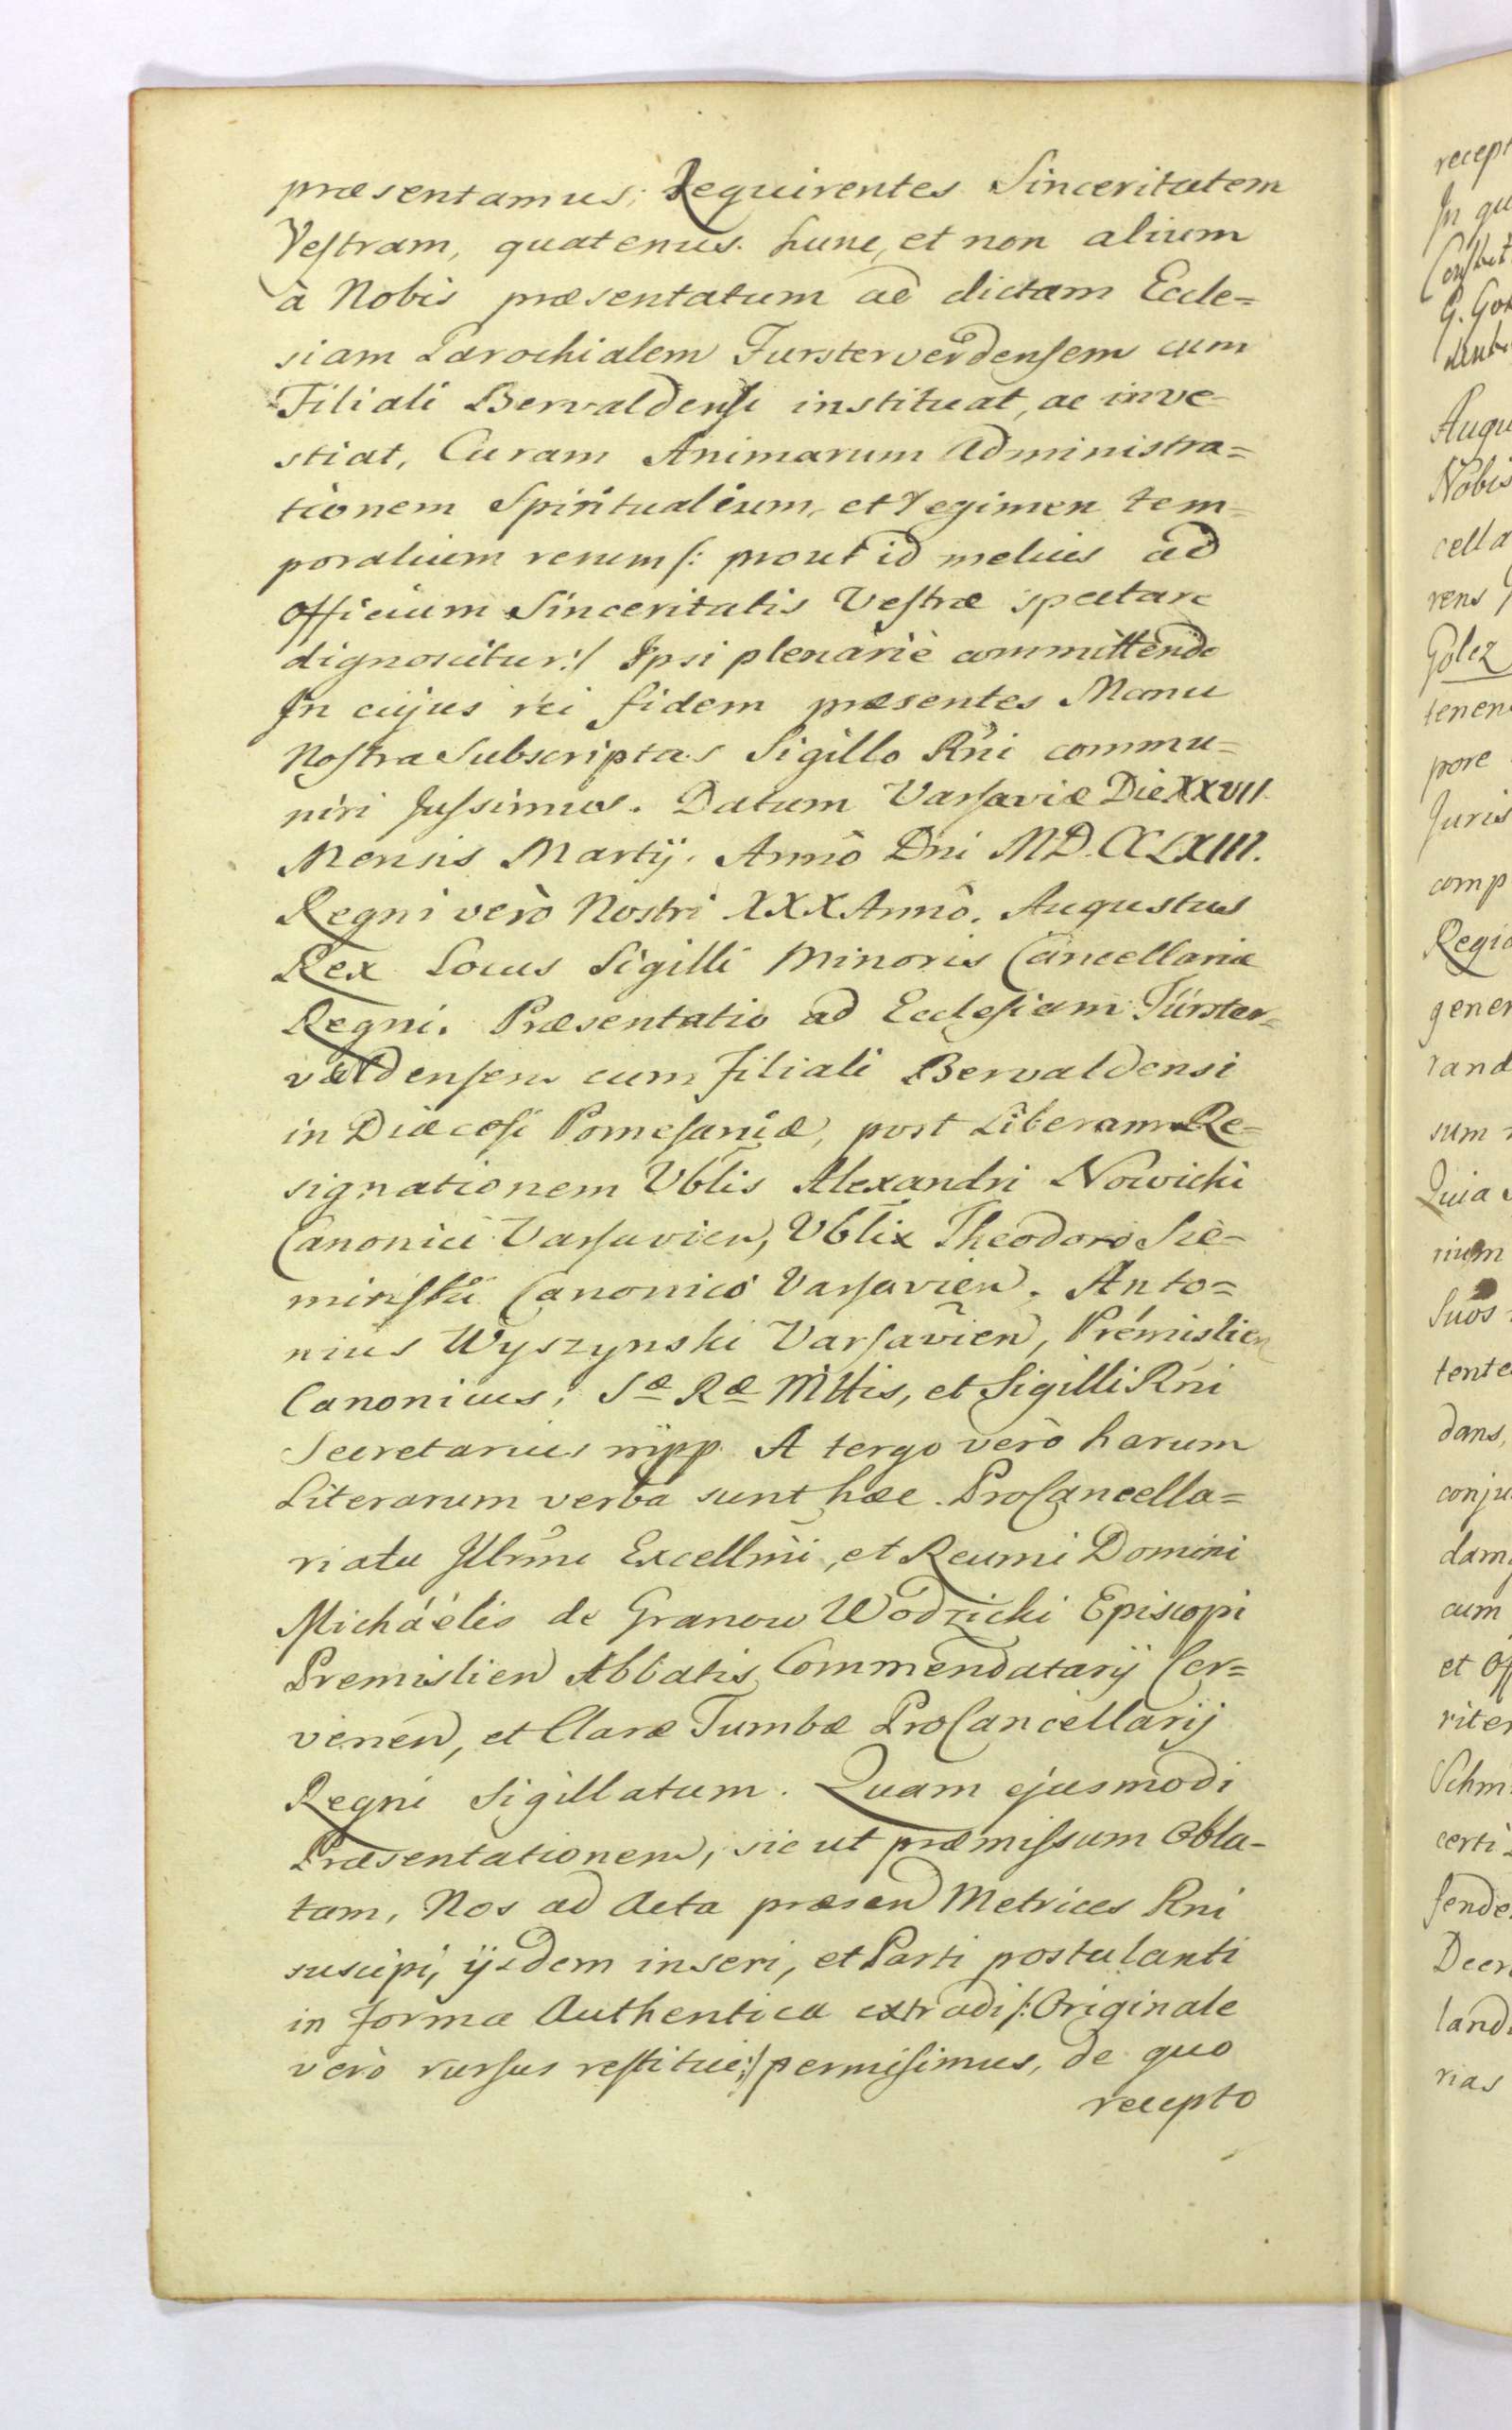 præsentamus; Requirentes Sinceritatem
Vestram, quatenus hunc, et non alium
à Nobis præsentatum ad dictam Eccle=
siam Parochialem Fursterverdensem cum
Filiali Bervaldensi instituat, ac inve-
stiat, Curam Animarum Administra=
tionem Spiritualium, et regimen tem=
poralium rerum /: prout id melius ad
Officium Sinceritatis Vestræ spectare
dignoscitur:/ Ipsi plenariè committendo
In cujus rei fidem præsentes Manu
Nostra Subscriptas Sigillo Rñi commu=
niri Jussimus. Datum Varsaviæ Die XXVII.
Mensis Martij. Annô Dni MD.CCLXIII.
Regni verò Nostri XXX Annô. Augustus
Rex Locus Sigilli Minoris Cancellariæ
Regni. Præsentatio ad Ecclesiam Fürster=
valdensem cum filiali Bervaldensi
in Diæcesi Pomesaniæ, post Liberam Re=
signationem Vblis Alexandri Nowicki
Canonici Varsavien, Vbli Theodoro Sie-
minski Canonico Varsavien. Anto=
nius Wyszynski Varsavien, Prémislien
Canonicus, Sæ Ræ Mttis, et Sigilli Rñi
Secretarius mpp. A tergo verò harum
Literarum verba sunt hæc. ProCancella=
riatu Illrmi Excellmi, et Reumi Domini
Micháelis de Granow Wodzicki Episcopi
Premislien Abbatis Commendatarij Cer=
venen, et Claræ Tumbæ ProCancellarij
Regni Sigillatum. Quam ejusmodi
Præsentationem, sic ut præmissum Obla-
tam, Nos ad Acta præsen Metrices Rni
suscipi, ijsdem inseri, et Parti postulanti
in forma Authentica extradi /: Originale
verò rursus restitui :/ permisimus, de quo
recepto
recept
In qu
G. Gor
Augu
Nobis
cella
rens
Golcz
tenen
pore
Juris
comp
Regia
gener
rand
sum
Quia
nium
Suos
tente
dans,
conju
dam
cum
et Off
riter
Schm
certi
sende
Decr
land
rias